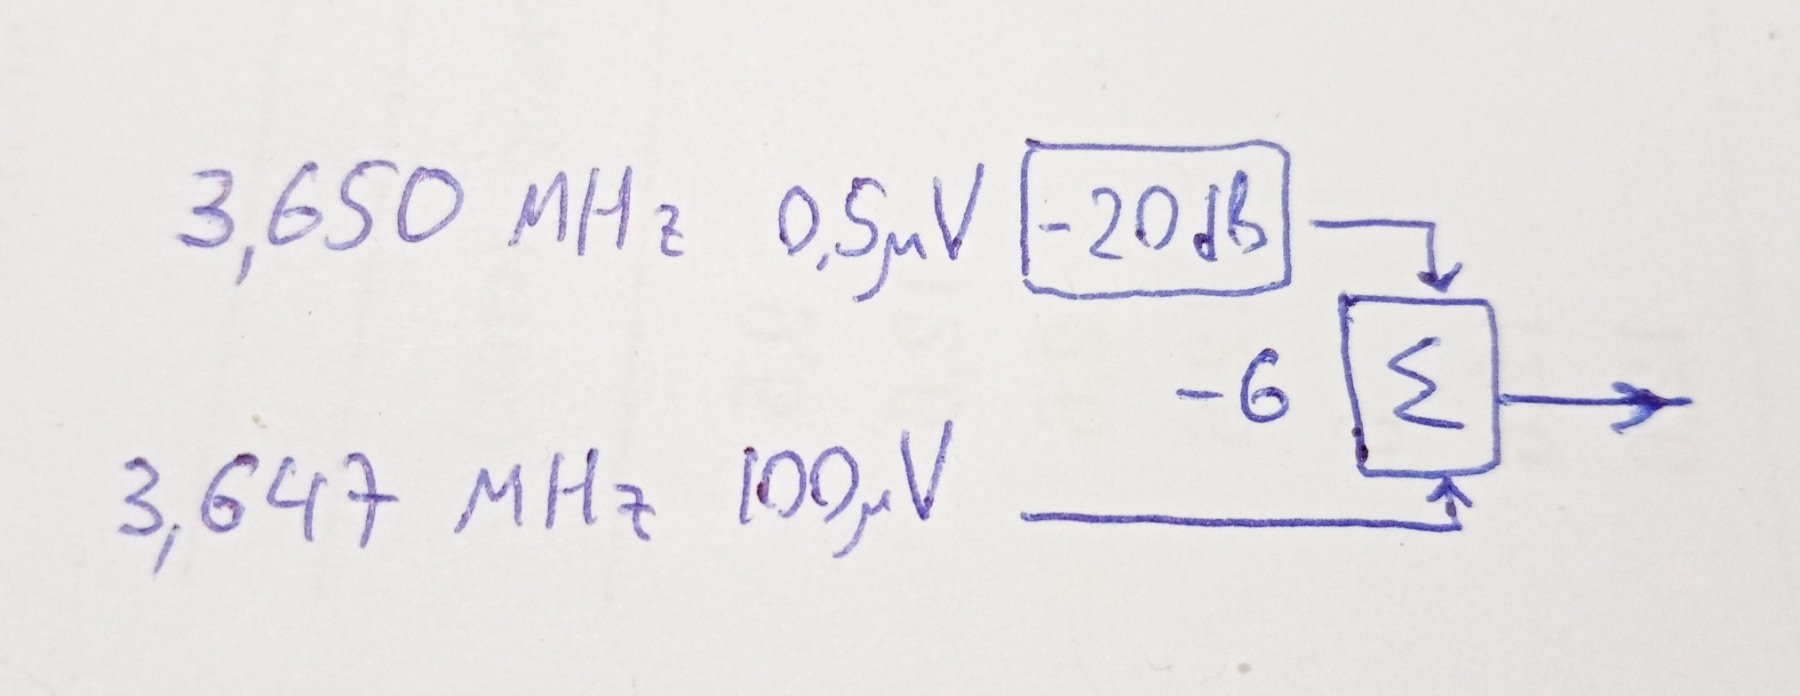 3,650 MHz 0,5µV -20dB
-6 Σ
3,647 MHz 100µV